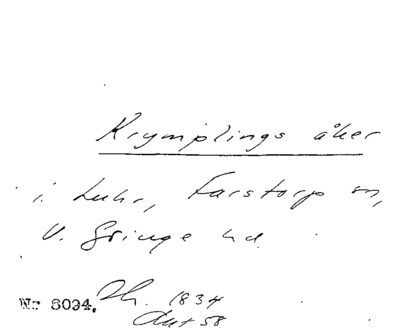 Krymplings åker
i. Luhr, Farstorp sn,
V. Göinge hd.
Nr 8034. Lh. 1834
Akt 58